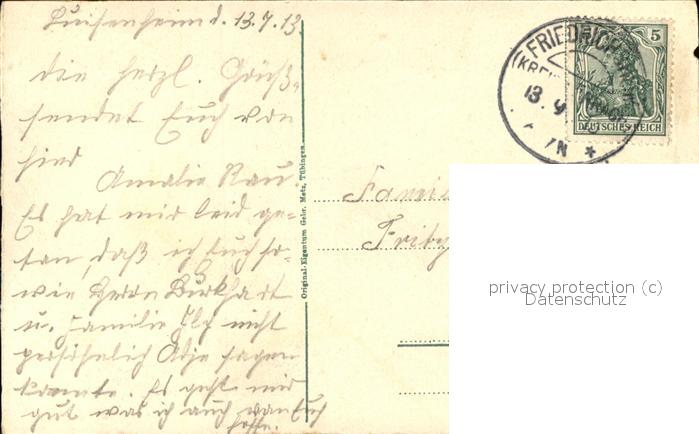 Luisenheim d. 13.7.13
die herzl. Grüße
sendet Euch von
hier
Amalie Rau
Es hat mir leid ge-
tan, daß ich Euch so-
wie Herrn Burkhart
u. Familie Ilg nicht
persönlich Adje sagen
konnte. Es geht mir
gut was ich auch von Euch
hoffe.
Original-Eigentum Gebr. Metz, Tübingen.
FRIEDRICHSHAFEN
13.
5
DEUTSCHES REICH
Famili
Fritz
privacy protection (c)
Datenschutz